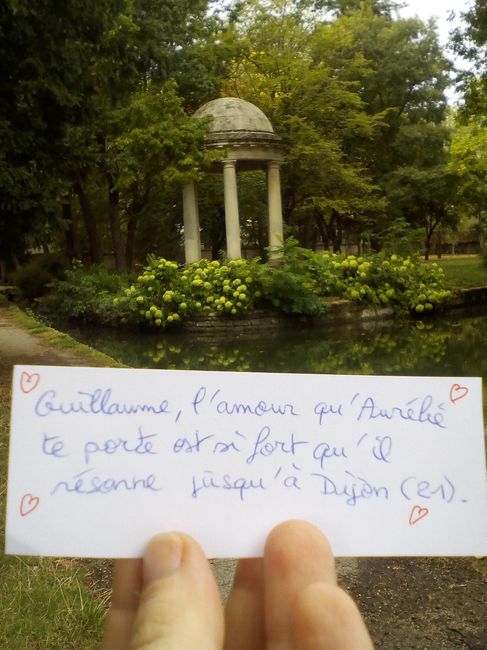 Guillaume, l'amour qu'Aurélie
te porte est si fort qu'il
résonne jusqu'à Dijon (21).